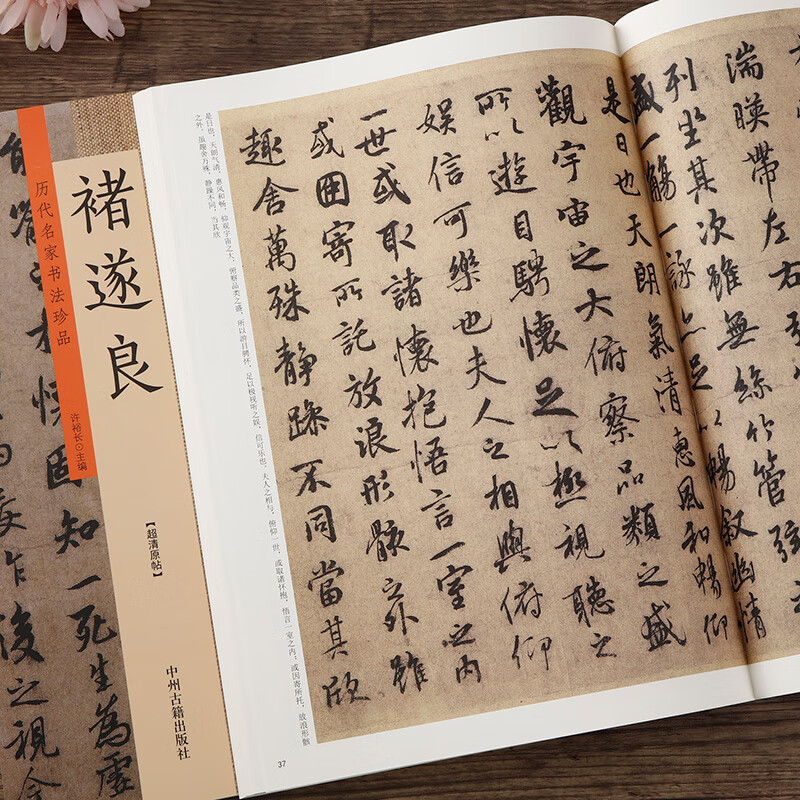 湍暎帶左右
列坐其次雖無絲竹管弦之
盛一觴一詠亦足以暢叙幽情
是日也天朗氣清惠風和暢仰
觀宇宙之大俯察品類之盛
所以遊目騁懷足以極視聽之
娛信可樂也夫人之相與俯仰
一世或取諸懷抱悟言一室之內
或因寄所託放浪形骸之外雖
趣舍萬殊静躁不同當其欣
是日也，天朗气清，惠风和畅，仰观宇宙之大，俯察品类之盛，所以游目骋怀，足以极视听之娱，信可乐也。夫人之相与，俯仰一世，或取诸怀抱，悟言一室之内；或因寄所托，放浪形骸
之外，虽趣舍万殊，静躁不同，当其欣
37
褚遂良
历代名家书法珍品
许裕长⊙主编
【超清原帖】
中州古籍出版社
固知一死生為虛
後之視今